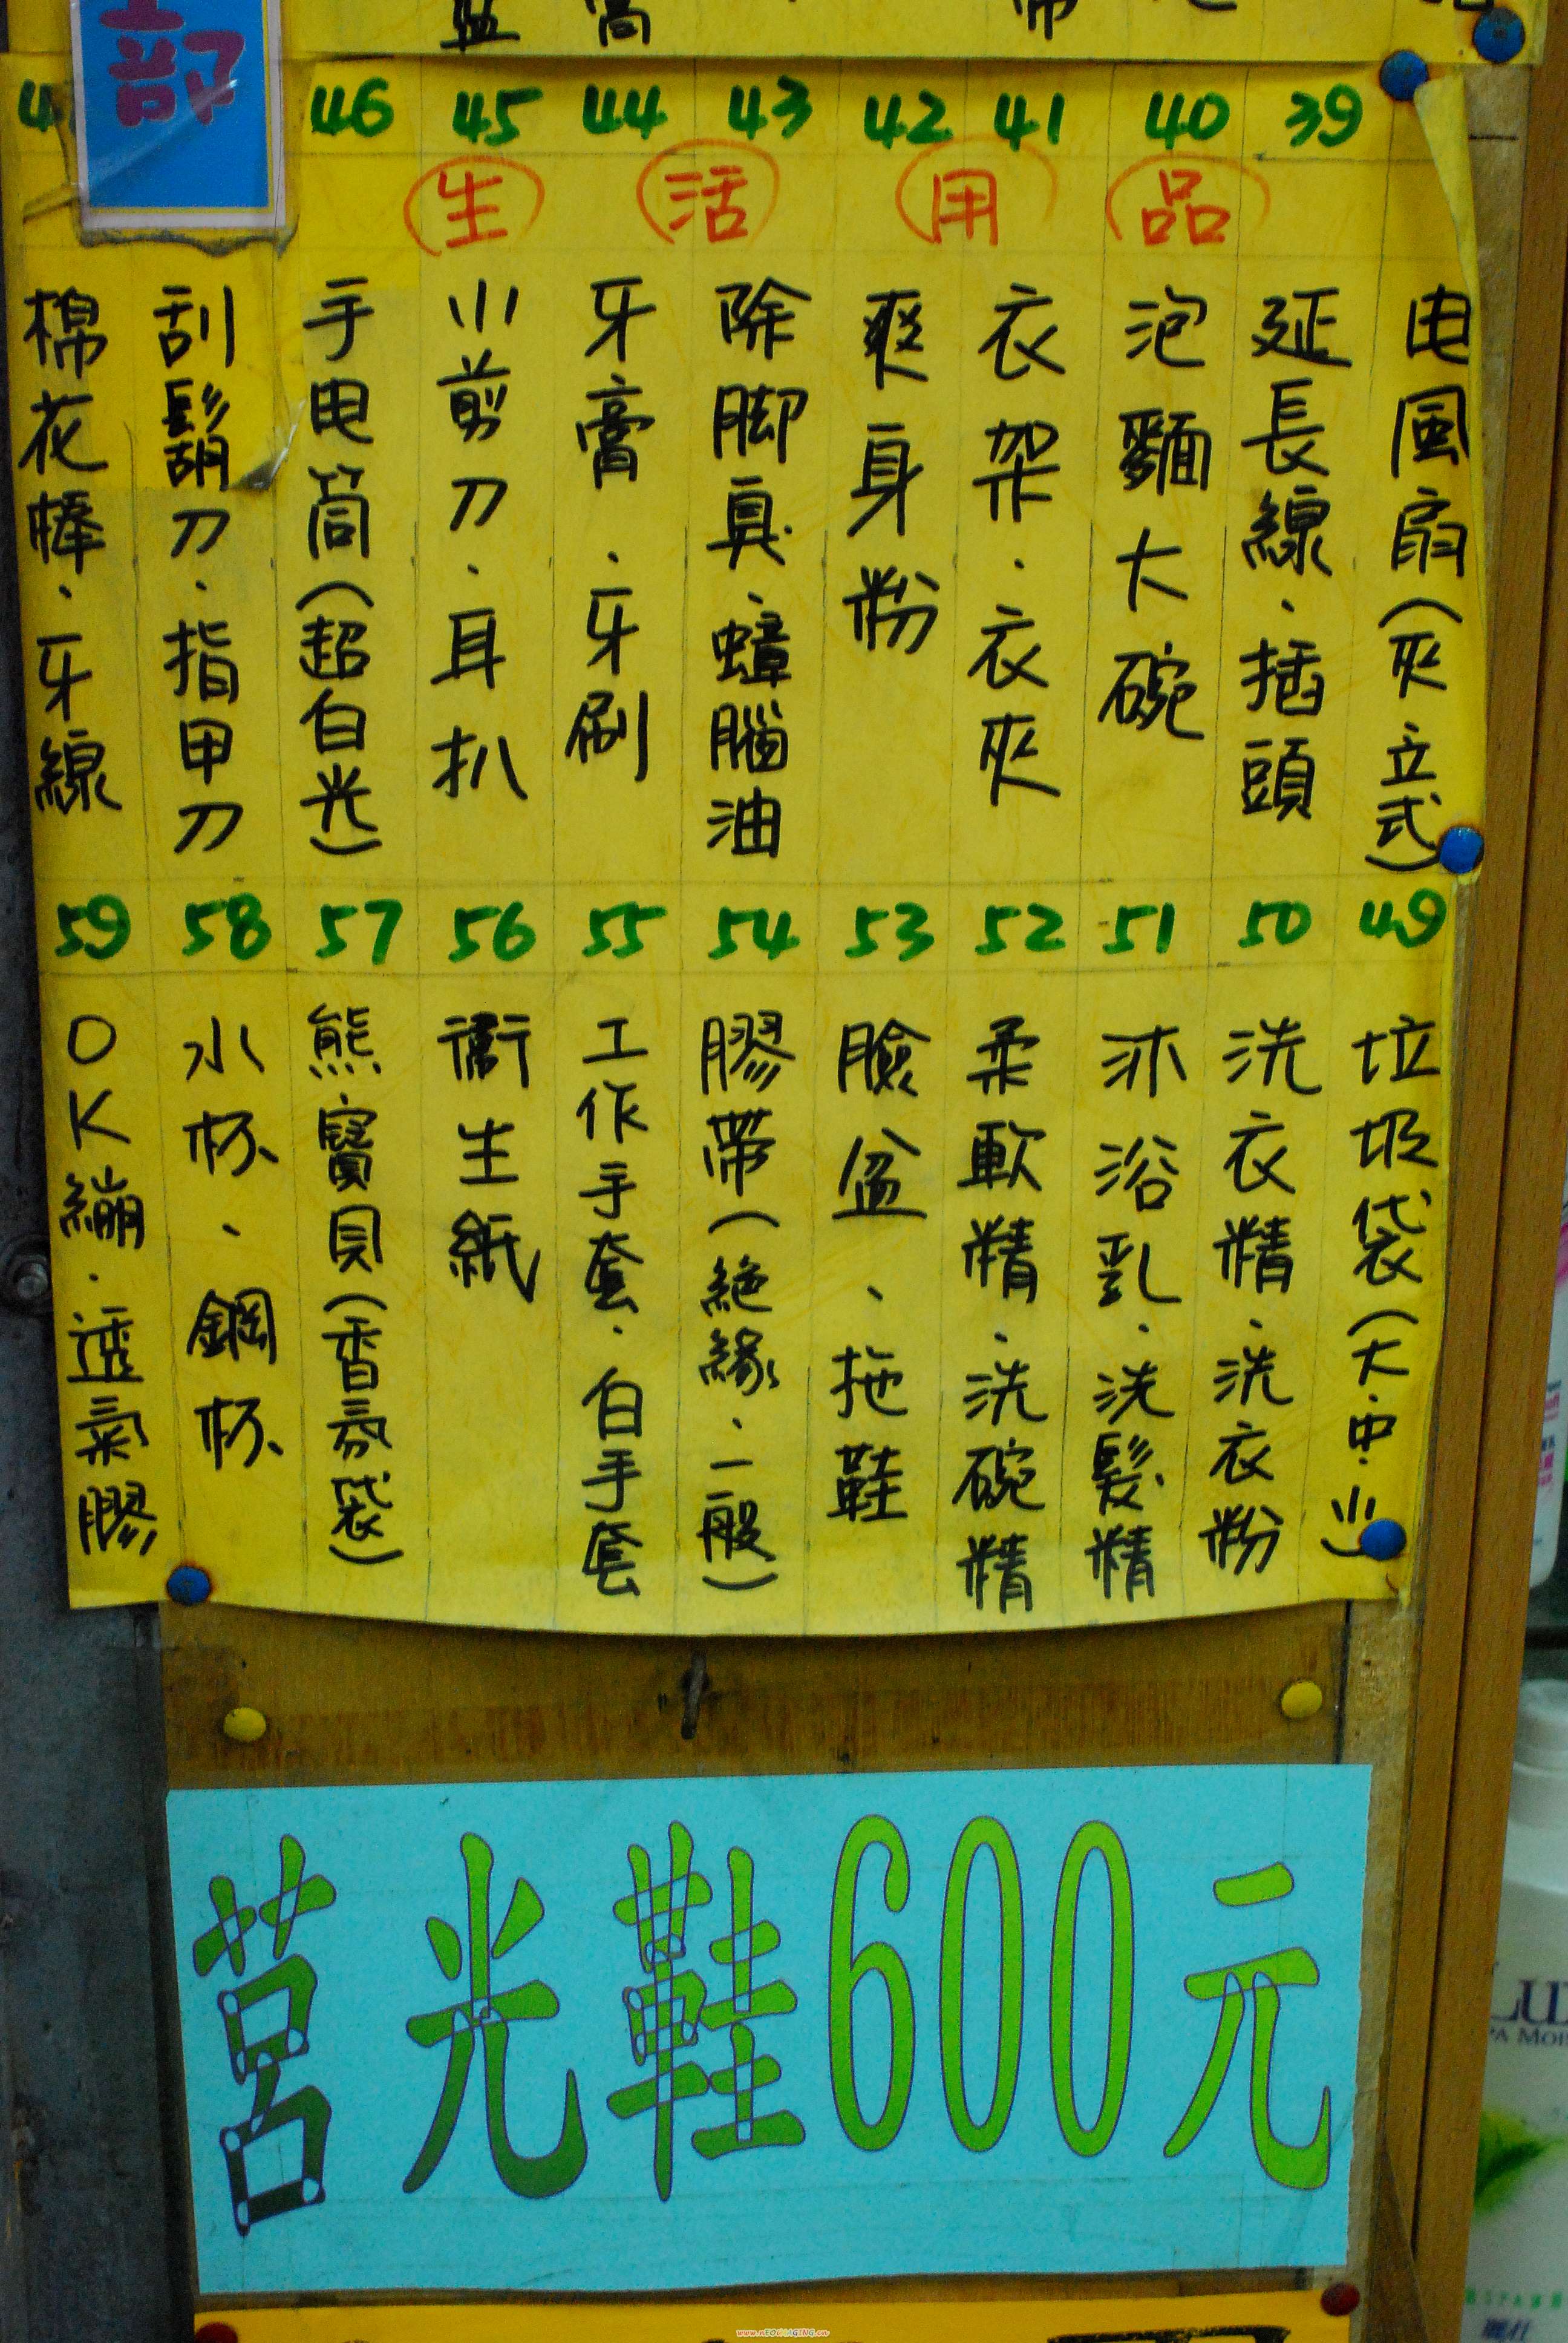 部
39 40 41 42 43 44 45 46
品用活生
电風扇(夾立式)
延長線.插頭
泡麵大碗
衣架.衣夾
爽身粉
除腳臭.蟑腦油
牙膏.牙刷
小剪刀.耳扒
手电筒(超白光)
刮鬍刀.指甲刀
棉花棒.牙線
49 垃圾袋(大.中.小)
50 洗衣精.洗衣粉
51 沐浴乳.洗髮精
52 柔軟精.洗碗精
53 臉盆、拖鞋
54 膠帶(絶緣、一般)
55 工作手套.白手套
56 衛生紙
57 熊寶貝(香氛袋)
58 水杯、鋼杯
59 OK繃.透氣膠
莒光鞋600元